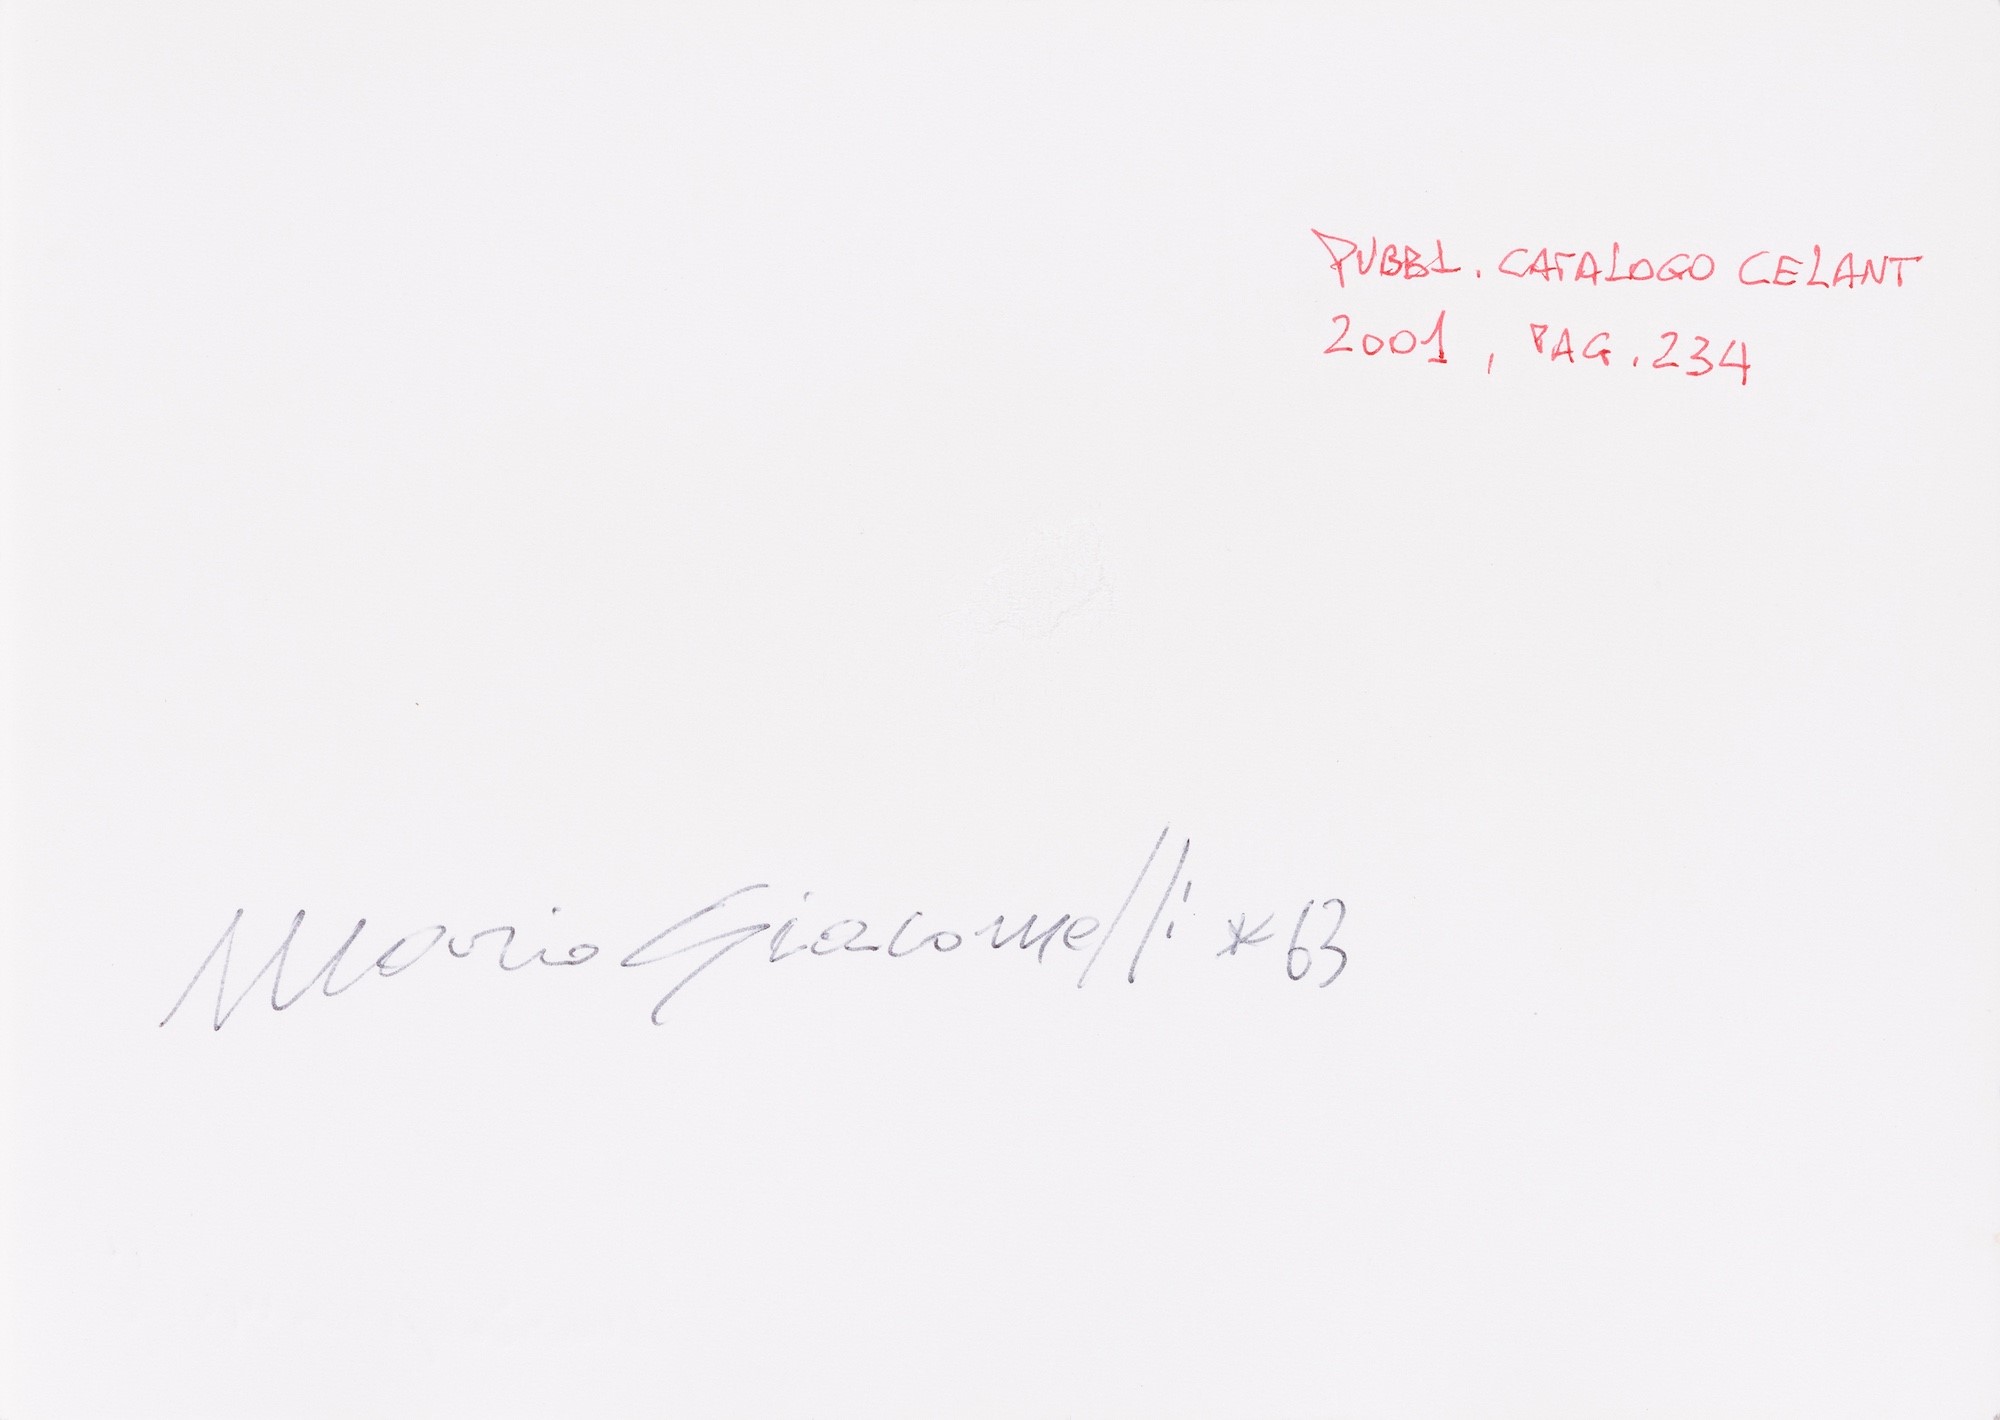 PUBBL. CATALOGO CELANT
2001, PAG. 234
Mario Giacomelli * 63